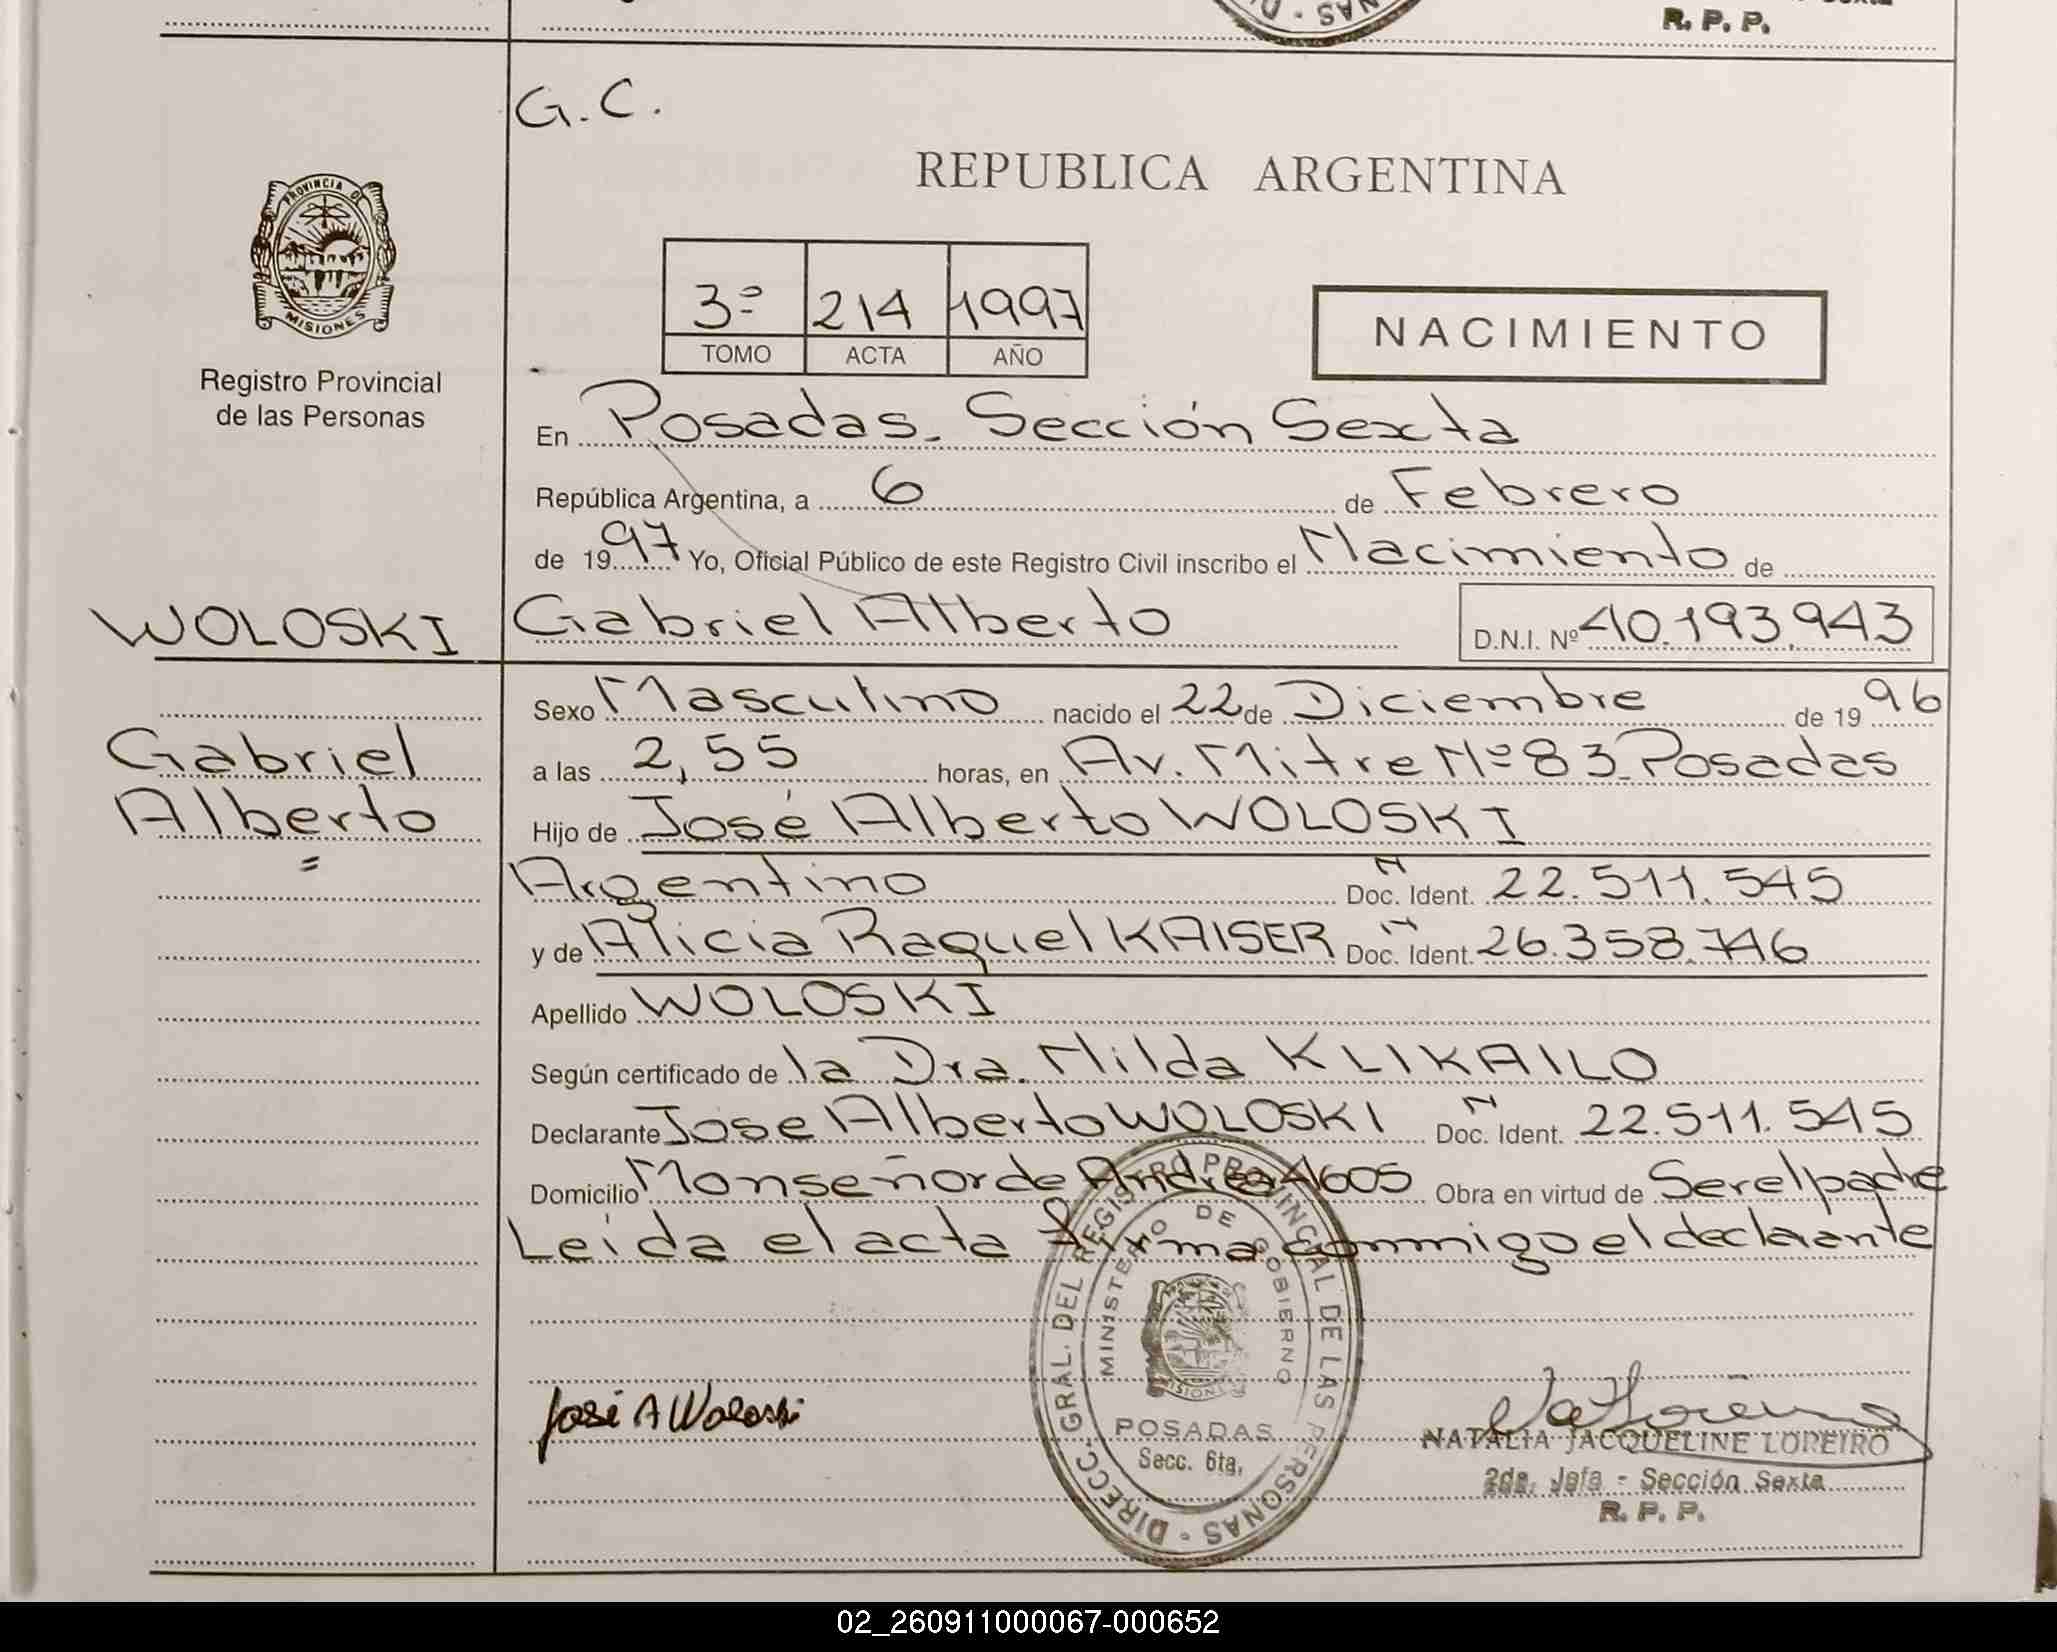 R. P. P.
G. C.
REPUBLICA ARGENTINA
PROVINCIA DE
MISIONES
3º 214 1997
TOMO ACTA AÑO
NACIMIENTO
Registro Provincial
de las Personas
En Posadas. Sección Sexta
República Argentina, a 6 de Febrero
de 1997 Yo, Oficial Público de este Registro Civil inscribo el Nacimiento de
WOLOSKI Gabriel Alberto D.N.I. Nº 40.193.943
Sexo Masculino nacido el 22 de Diciembre de 1996
Gabriel a las 2,55 horas, en Av. Mitre Nº 83 Posadas
Alberto Hijo de José Alberto WOLOSKI
=
Argentino N Doc. Ident. 22.511.545
y de Alicia Raquel KAISER N Doc. Ident. 26.358.746
Apellido WOLOSKI
Según certificado de la Dra. Nilda KLIKAILO
Declarante José Alberto WOLOSKI N Doc. Ident. 22.511.545
Domicilio Monseñor de Andrea 4605 Obra en virtud de Ser el padre
Leída el acta firma conmigo el declarante
DIRECC. GRAL. DEL REGISTRO PROVINCIAL DE LAS PERSONAS
MINISTERIO DE GOBIERNO
MISIONES
POSADAS
Secc. 6ta.
José A Woloski
NATALIA JACQUELINE LOREIRO
2da. Jefa - Sección Sexta
R. P. P.
02_260911000067-000652